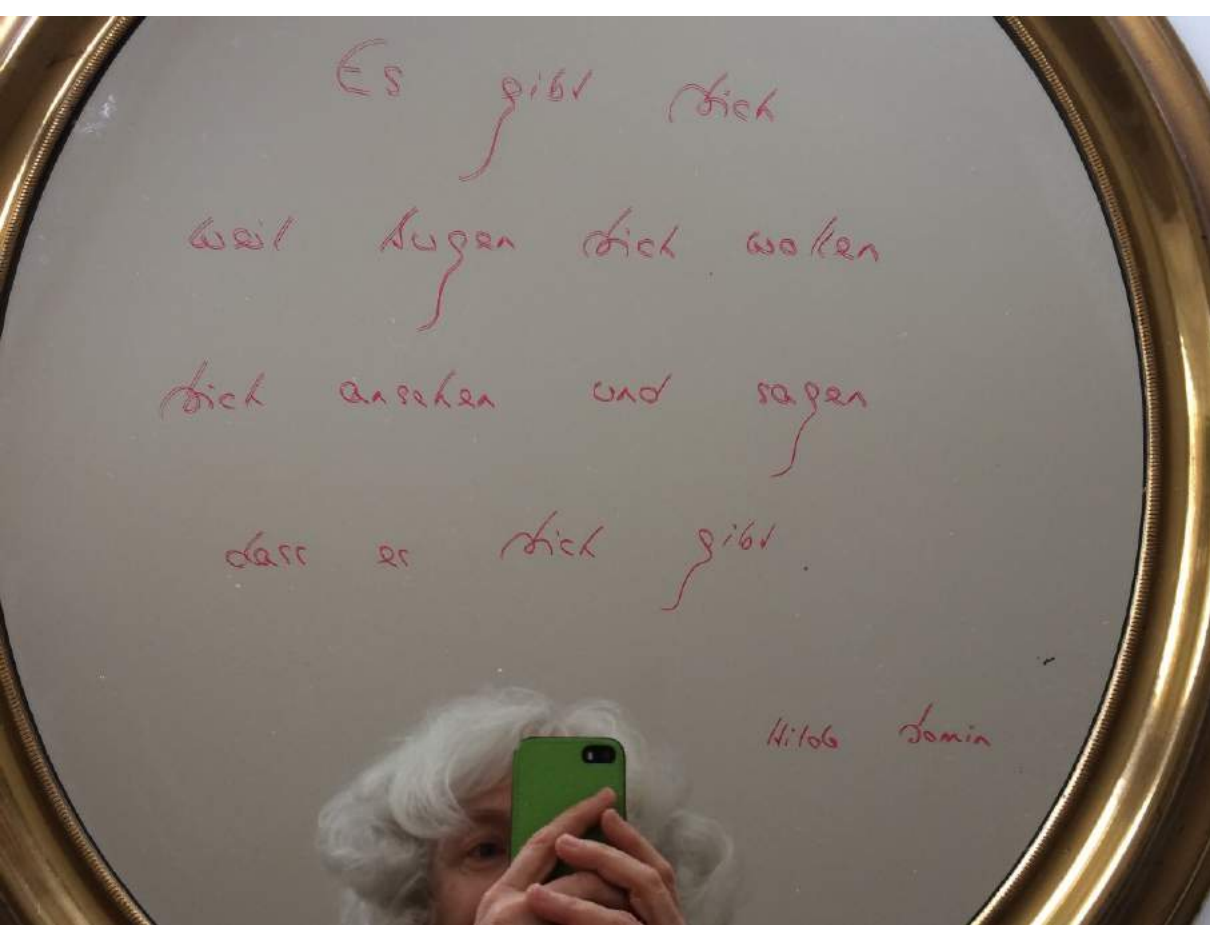 Es gibt Dich
weil Augen Dich wollen
Dich ansehen und sagen
dass es Dich gibt.
Hilde Domin